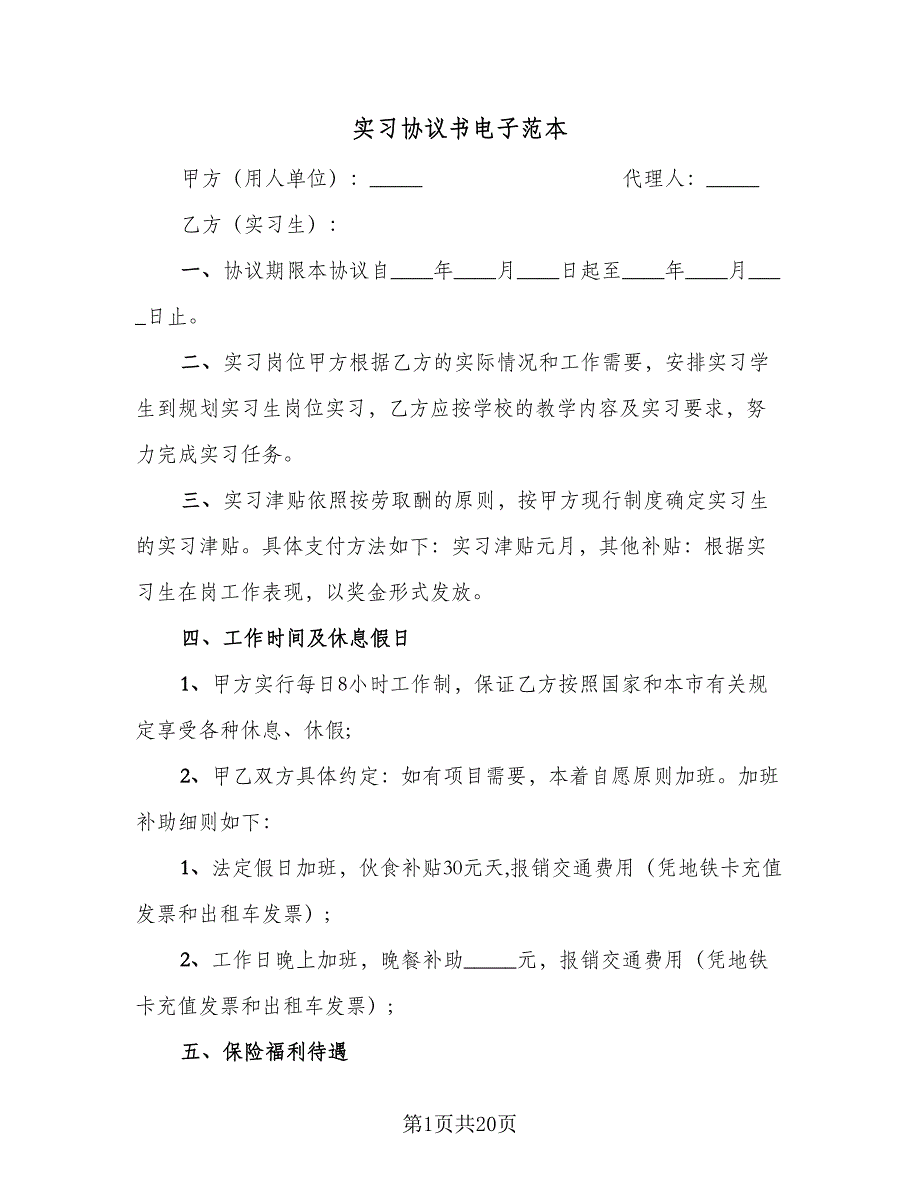 实习协议书电子范本
甲方（用人单位）：_____ 代理人：_____
乙方（实习生）：
一、协议期限本协议自____年____月____日起至____年____月___
_日止。
二、实习岗位甲方根据乙方的实际情况和工作需要，安排实习学
生到规划实习生岗位实习，乙方应按学校的教学内容及实习要求，努
力完成实习任务。
三、实习津贴依照按劳取酬的原则，按甲方现行制度确定实习生
的实习津贴。具体支付方法如下：实习津贴元月，其他补贴：根据实
习生在岗工作表现，以奖金形式发放。
四、工作时间及休息假日
1、甲方实行每日8小时工作制，保证乙方按照国家和本市有关规
定享受各种休息、休假;
2、甲乙双方具体约定：如有项目需要，本着自愿原则加班。加班
补助细则如下：
1、法定假日加班，伙食补贴30元天,报销交通费用（凭地铁卡充值
发票和出租车发票）;
2、工作日晚上加班，晚餐补助_____元，报销交通费用（凭地铁
卡充值发票和出租车发票）;
五、保险福利待遇
第1页共20页